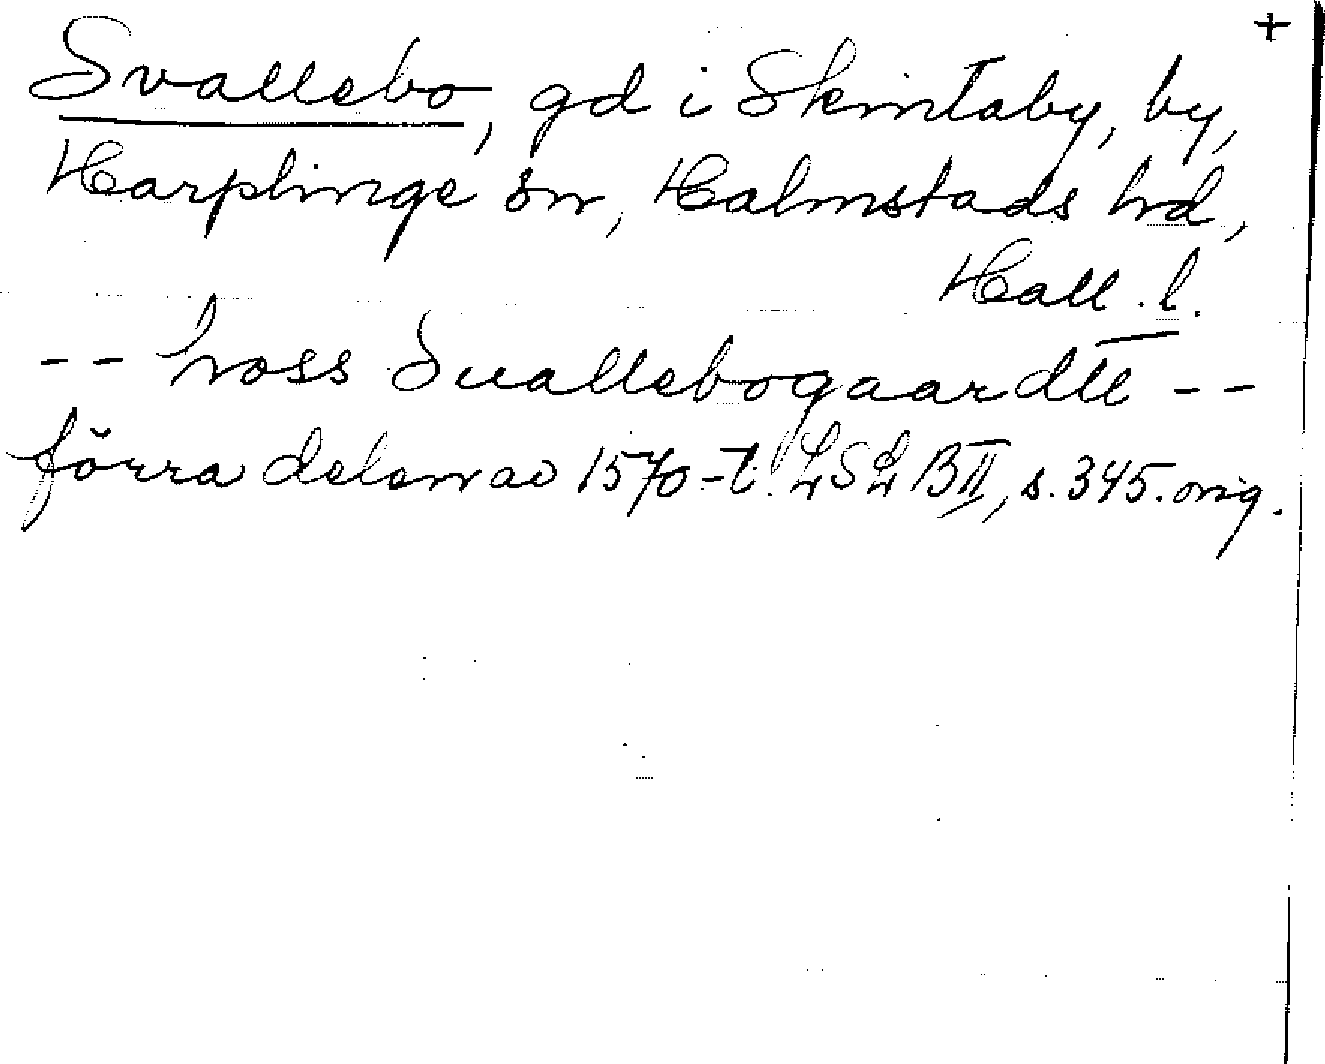 +
Svallebo, gd i Skintaby, by,
Harplinge sn, Halmstads hrd,
Hall. l.
-- hoss Suallebogaardtt --
förra delen av 1570-t. LSL BII, s. 345. orig.